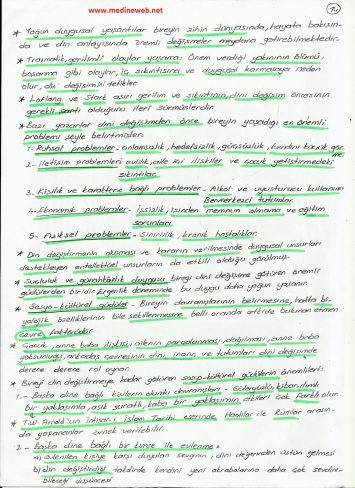 www.medineweb.net
* Yoğun duygusal yaşantılar bireyin zihin dünyasında, hayata bakışın-
da ve din anlayışında önemli değişmeler meydana getirebilmektedir.
* Travmatik, gerilimli olaylar yaşama: Önem verdiği yakınının ölümü,
boşanma gibi olaylar, iç sıkıntısına ve duygusal karmaşaya neden
olur, dini değişimi tetikler.
* Lofland ve Stark aşırı gerilim ve sıkıntının, dini değişim öncesinin
gerekli şartı olduğunu ileri sürmüşlerdir.
* Bazı yazarlar dini değişimden önce bireyin yaşadığı en önemli
problemi şöyle belirtmişler:
1. Ruhsal problemler - anlamsızlık, hedefsizlik, güçsüzlük, kendini küçük gör-
me.
2. - İletişim problemleri evlilik, aile içi ilişkiler ve çocuk yetiştirmedeki
sıkıntılar.
3. Kişilik ve karaktere bağlı problemler - Alkol ve uyuşturucu kullanımı
Benmerkezci tutumlar.
4. Ekonomik problemler - işsizlik, işinden memnun olmama ve eğitim
sorunları.
5 - Fiziksel problemler - Sinirlilik, kronik hastalıklar.
* Din değiştirmenin oluşması ve kararın verilmesinde duygusal unsurları
destekleyen entellektüel unsurların da etkili olduğu görülmüş.
* Suçluluk ve günahkarlık duygusu bireyi dini değişime götüren önemli
güdülerden biridir. Ergenlik döneminde bu duygu daha yoğun yaşanır.
* Sosyo-kültürel güdüler - Bireyin davranışlarının belirmesine, hatta bi-
yolojik özelliklerinin bile şekillenmesine belli oranda etkide bulunan etmen
çevre faktörüdür.
* Çocuk, anne baba ilişkisi, ailenin parçalanması, dağılması, anne baba
yoksunluğu, arkadaş çevresinin dini inanç ve tutumları dini değişimde
derece derece rol oynar.
* Bireyi din değiştirmeye kadar götüren sosyo-kültürel güdülerin önemlileri:
1. - Başka dine bağlı kişilerin olumlu davranışları -
bir yaklaşımla, asık suratlı, kaba bir yaklaşımın etkileri çok farklı olur.
* T.W. Arnold'un İntişar-ı İslam Tarihi eserinde, Haçlılar ile Rumlar arasın-
da yaşananlar örnek verilebilir.
2. - Başka dine bağlı bir kimse ile evlenme =
a) evlenilen kişiye karşı duyulan sevginin, dini değerinden üstün gelmesi
b) din değiştirdiği takdirde kendini yeni akrabalarına daha çok sevdire-
bileceği düşüncesi